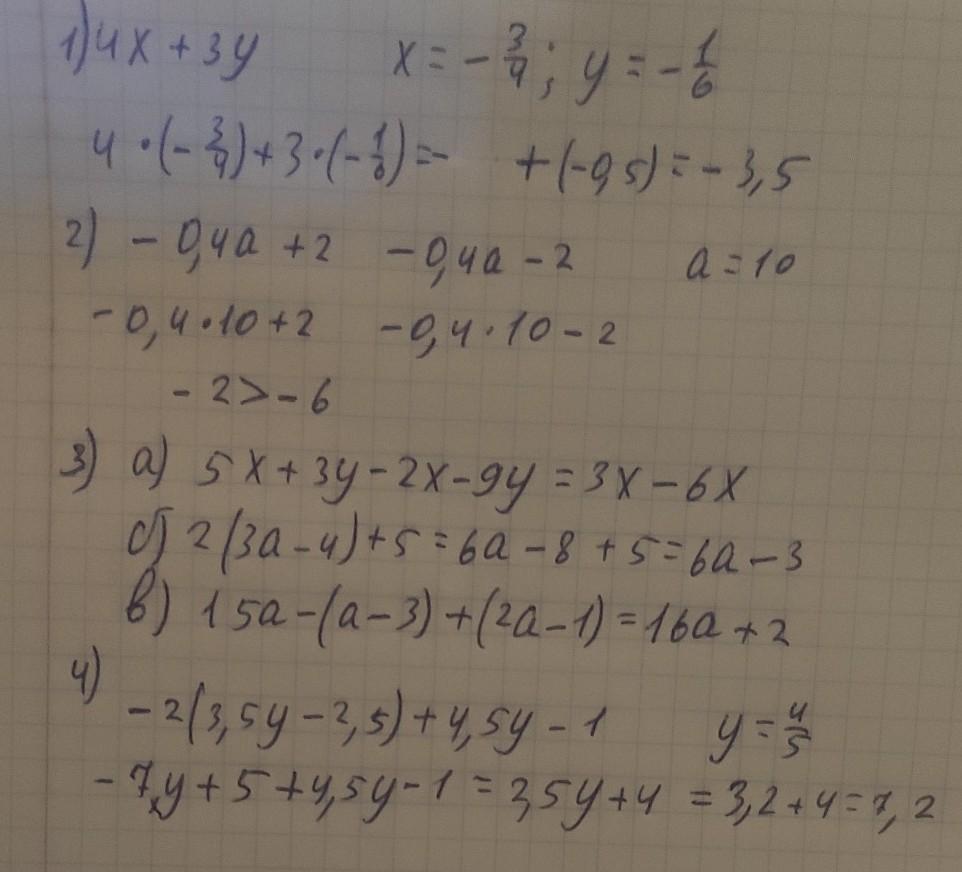 1) 4x + 3y x = -3/4; y = -1/6
4 · (-3/4) + 3 · (-1/6) = - + (-0,5) = -3,5
2) -0,4a + 2 -0,4a - 2 a = 10
-0,4 · 10 + 2 -0,4 · 10 - 2
-2 > -6
3) а) 5x + 3y - 2x - 9y = 3x - 6x
б) 2(3a - 4) + 5 = 6a - 8 + 5 = 6a - 3
в) 15a - (a - 3) + (2a - 1) = 16a + 2
4)
-2(3,5y - 2,5) + 4,5y - 1 y = 4/5
-7y + 5 + 4,5y - 1 = 2,5y + 4 = 3,2 + 4 = 7,2